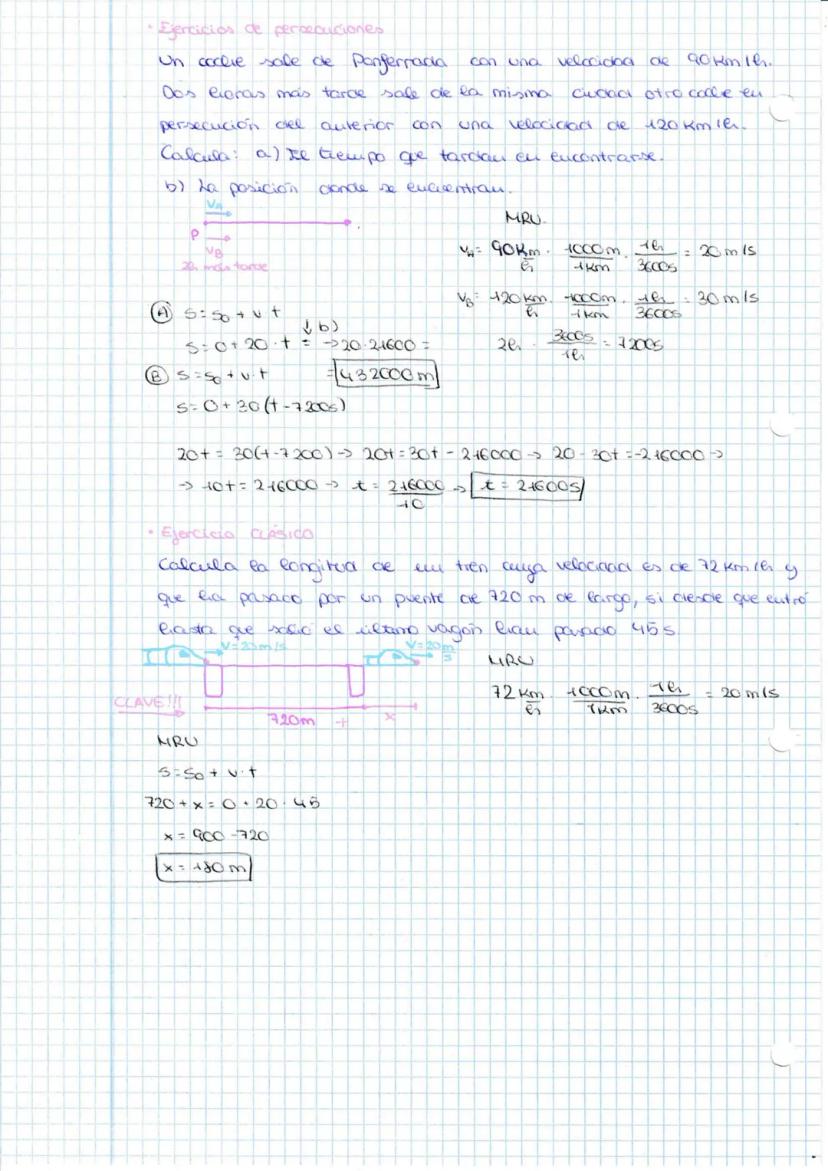 · Ejercicios de persecuciones
Un coche sale de Ponferrada con una velocidad de 90 Km/h.
Dos horas más tarde sale de la misma ciudad otro coche en
persecución del anterior con una velocidad de 120 Km/h.
Calcula: a) El tiempo que tardan en encontrarse.
b) La posición donde se encuentran.
VA
P
VB
2h más tarde
MRU
VA = 90 Km/h · 1000m/1Km · 1h/3600s = 20 m/s
VB = 120 Km/h · 1000m/1Km · 1h/3600s = 30 m/s
2h · 3600s/1h = 7200s
(A) S = S0 + v t
↓ b)
S = 0 + 20 · t = → 20 · 21600 =
= 432000 m
(B) S = S0 + v · t
S = 0 + 30 (t - 7200s)
20t = 30(t - 7200) → 20t = 30t - 216000 → 20 - 30t = -216000 →
→ 10t = 216000 → t = 216000/10 → t = 21600s
· Ejercicio CLÁSICO
Calcula la longitud de un tren cuya velocidad es de 72 Km/h y
que ha pasado por un puente de 720 m de largo, si desde que entró
hasta que salió el último vagón han pasado 45s.
V = 20 m/s
V = 20 m/s
CLAVE!!!
720m + x
MRU
72 Km/h · 1000m/1Km · 1h/3600s = 20 m/s
MRU
S = S0 + v · t
720 + x = 0 + 20 · 45
x = 900 - 720
x = 180 m